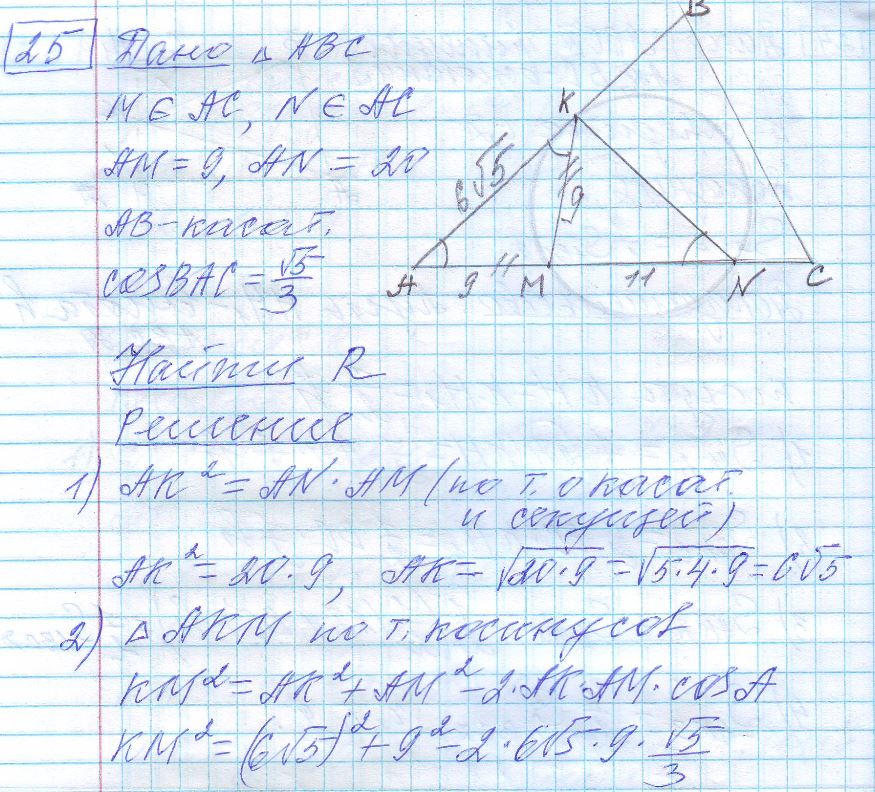 25 Дано △ ABC
M ∈ AC, N ∈ AC
AM = 9, AN = 20
AB - касат.
cos BAC = √5/3
B
K
6√5
9
A 9 M 11 N C
Найти R
Решение
1) AK² = AN · AM (по т. о касат.
и секущей)
AK² = 20 · 9, AK = √20·9 = √5·4·9 = 6√5
2) △ AKM по т. косинусов
KM² = AK² + AM² - 2·AK·AM·cos A
KM² = (6√5)² + 9² - 2·6√5·9·√5/3